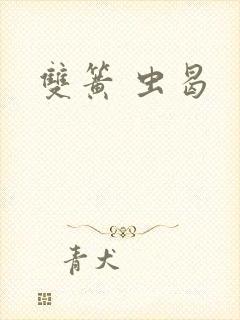 雙簧 虫曷
青犬